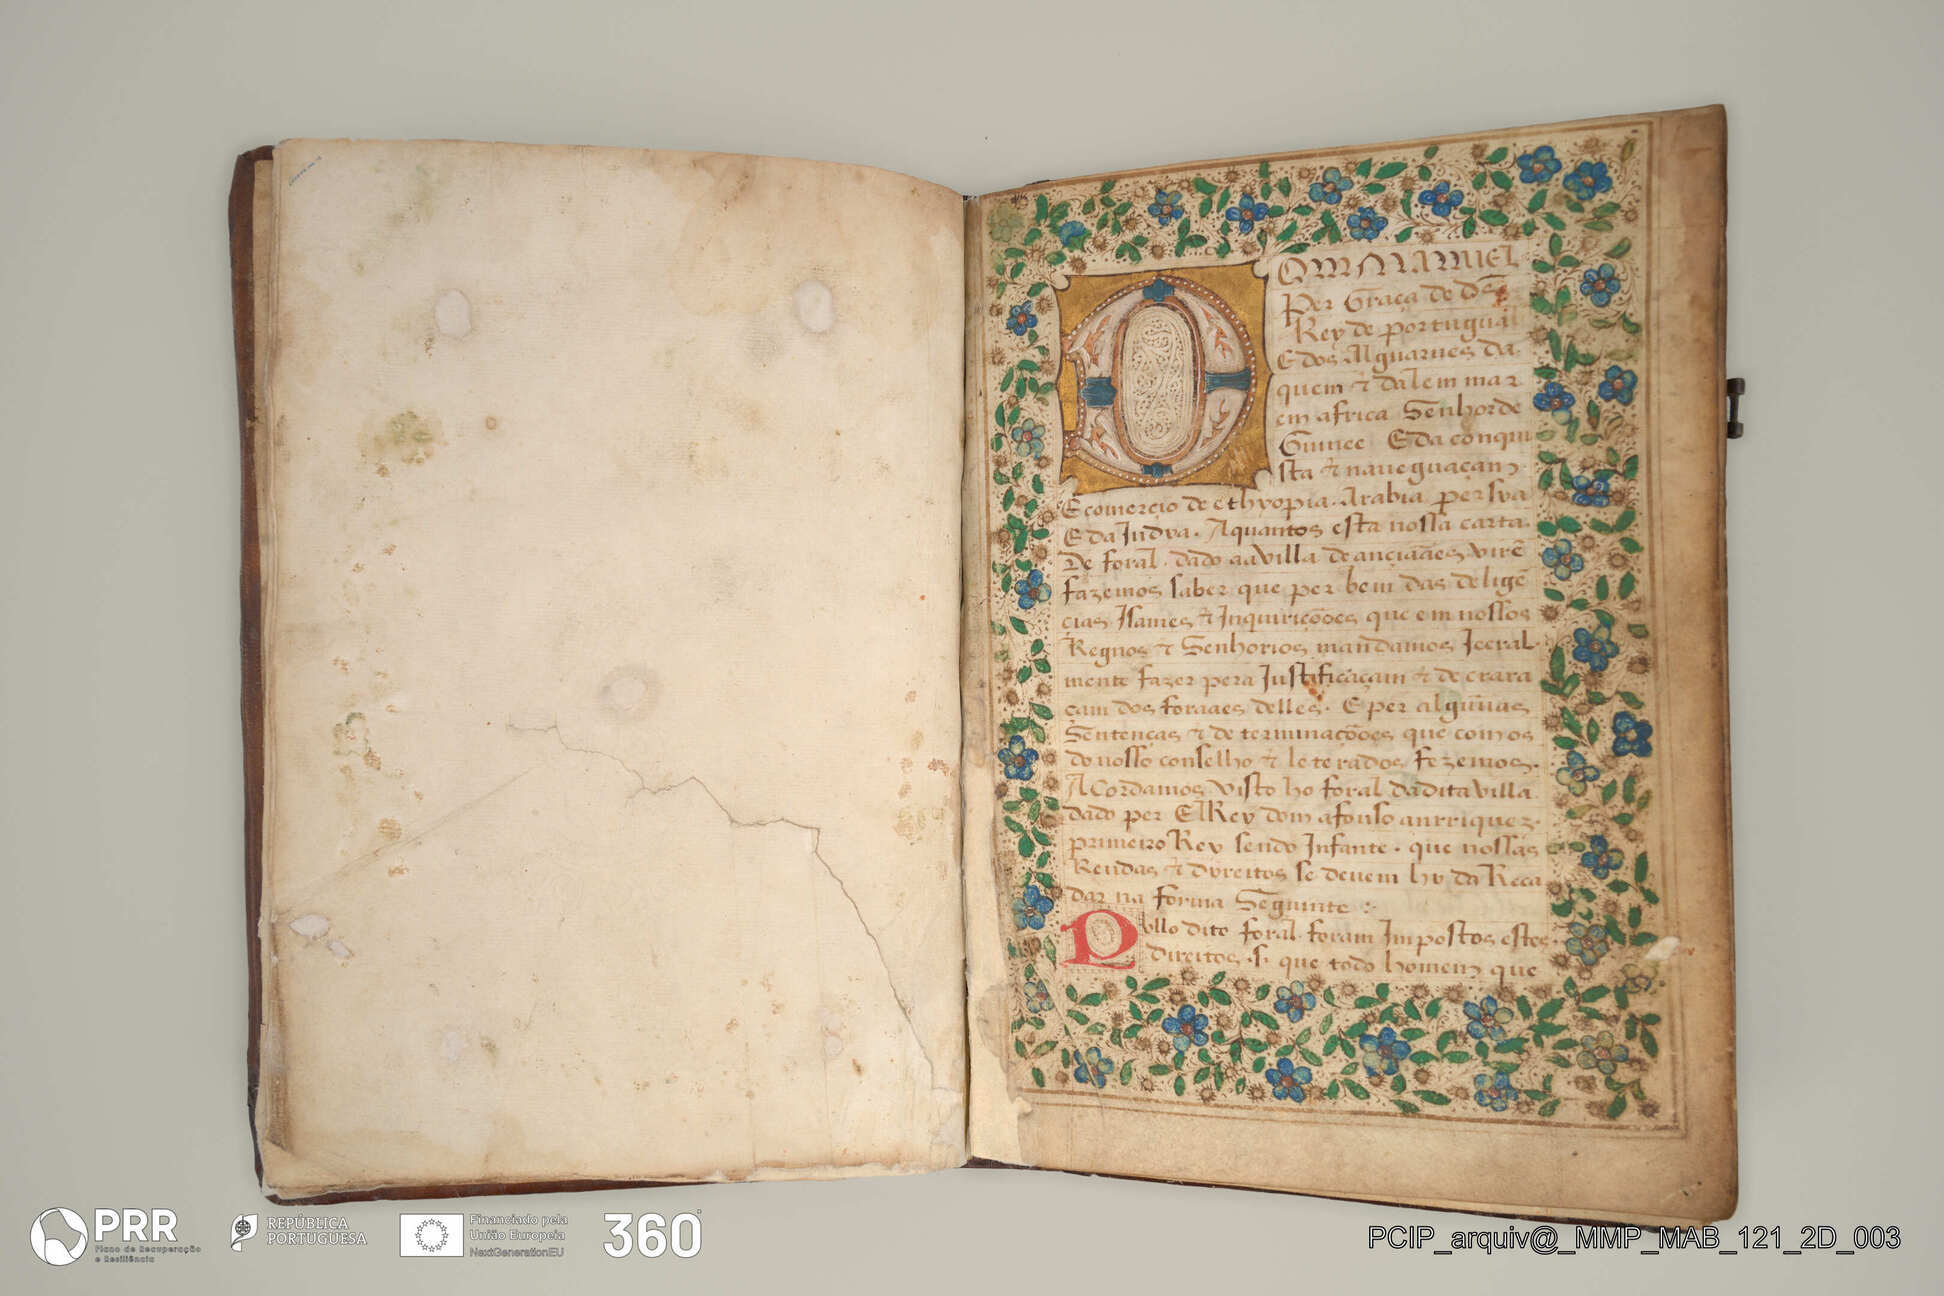 DOM MANUEL
Per Graça de ds̃
Rey de portugual
E dos Alguarues da
quem & dalem mar
em africa Senhor de
Guinee E da conqui
sta & naueguaçam
E comercio de ethyopia. Arabia persya
E da Indya. Aquantos esta nossa carta
De foral. dado aa villa de anciaães virẽ
fazemos saber que per bem das deligẽ
cias Isames & Inquiriçoões que em nossos
Regnos & Senhorios mandamos Jeeral
mente fazer pera Justificaçam & decrara
çam dos foraaes delles. E per algũuas
Sentenças & determinaçoões que com os
do nosso conselho & leterados fezemos.
ACordamos visto ho foral da dita villa
dado per ElRey dom afonso anrriquez
primeiro Rey sendo Infante. que nossas
Rendas & dyreitos se devem hy da Reca
dar na forma Seguinte :
Pello dito foral foram Impostos estes
direitos .s. que todo homem que
PRR
Plano de Recuperação
e Resiliência
REPÚBLICA
PORTUGUESA
Financiado pela
União Europeia
NextGenerationEU
360°
PCIP_arquiv@_MMP_MAB_121_2D_003